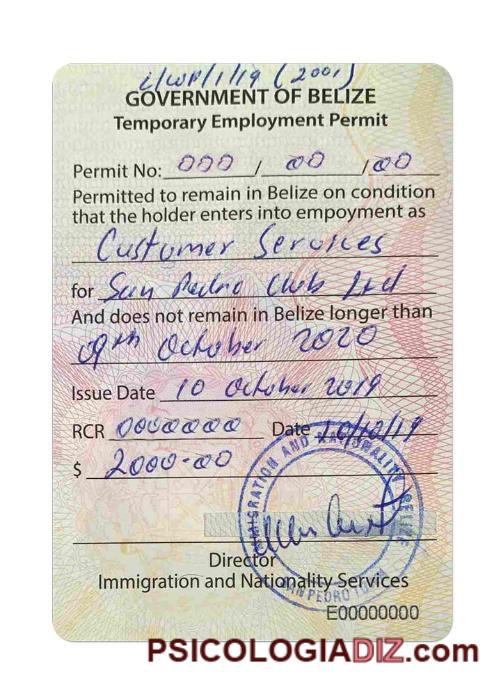 i/WP/1/19 (2001)
GOVERNMENT OF BELIZE
Temporary Employment Permit
Permit No: 000 / 00 / 00
Permitted to remain in Belize on condition
that the holder enters into empoyment as
Customer Services
for San Pedro Club Ltd
And does not remain in Belize longer than
09th October 2020
Issue Date 10 October 2019
RCR 0000000 Date 10/10/19
$ 2000-00
IMMIGRATION AND NATIONALITY BELIZE
SAN PEDRO TOWN
Director
Immigration and Nationality Services
E00000000
PSICOLOGIADIZ.com